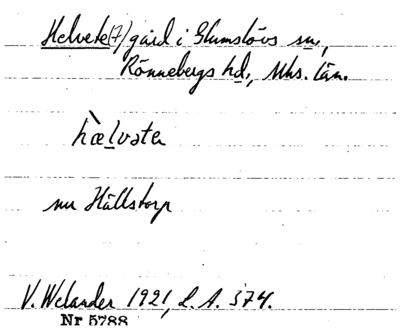 Helvete(7) gård i Glumslövs sn,
Rönnebergs hd, Mhs. län.
hælvəta
nu Hällstorp
V. Welander 1921, L. A. 374.
Nr 5788